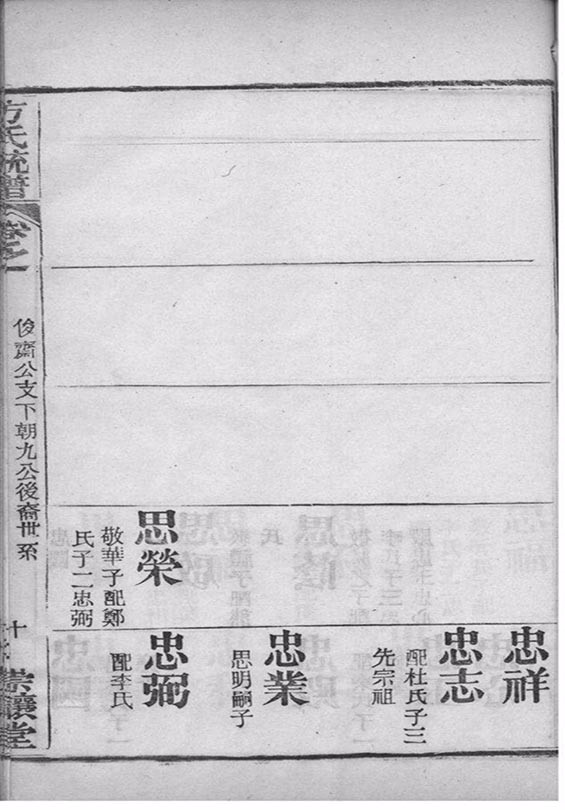 忠祥
忠志
配杜氏子三
先宗祖
忠業
思明嗣子
思榮
敬華子配鄭
氏子二忠弼
忠弼
配李氏
方氏統譜
卷之一
俊齋公支下朝九公後裔世系
十
堂